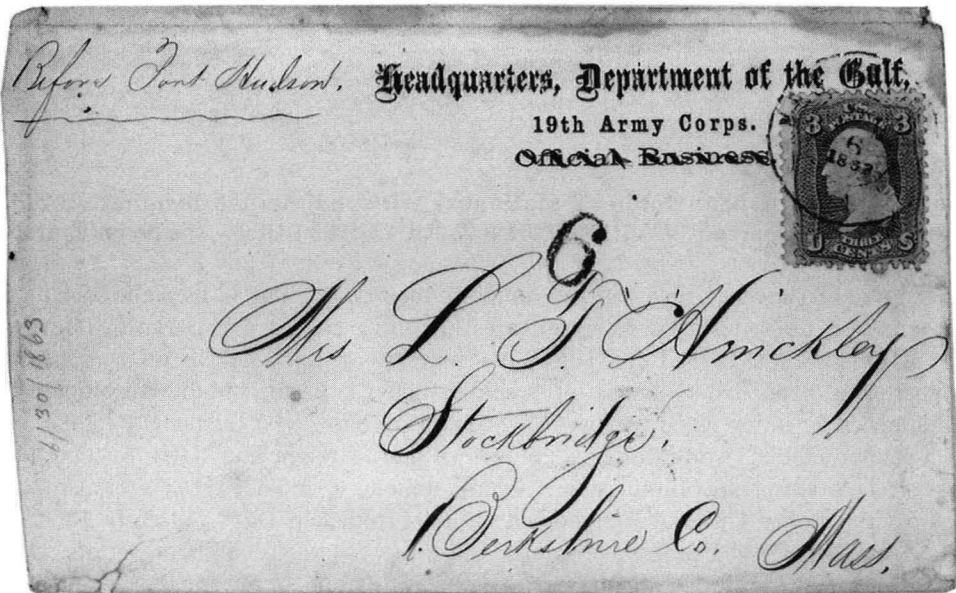 Before Port Hudson.
Headquarters, Department of the Gulf,
19th Army Corps.
Official Business.
3 U.S. POSTAGE 3
6
1863
U THREE CENTS S
6
Mrs L. F. Hinckley
Stockbridge.
Berkshire Co. Mass.